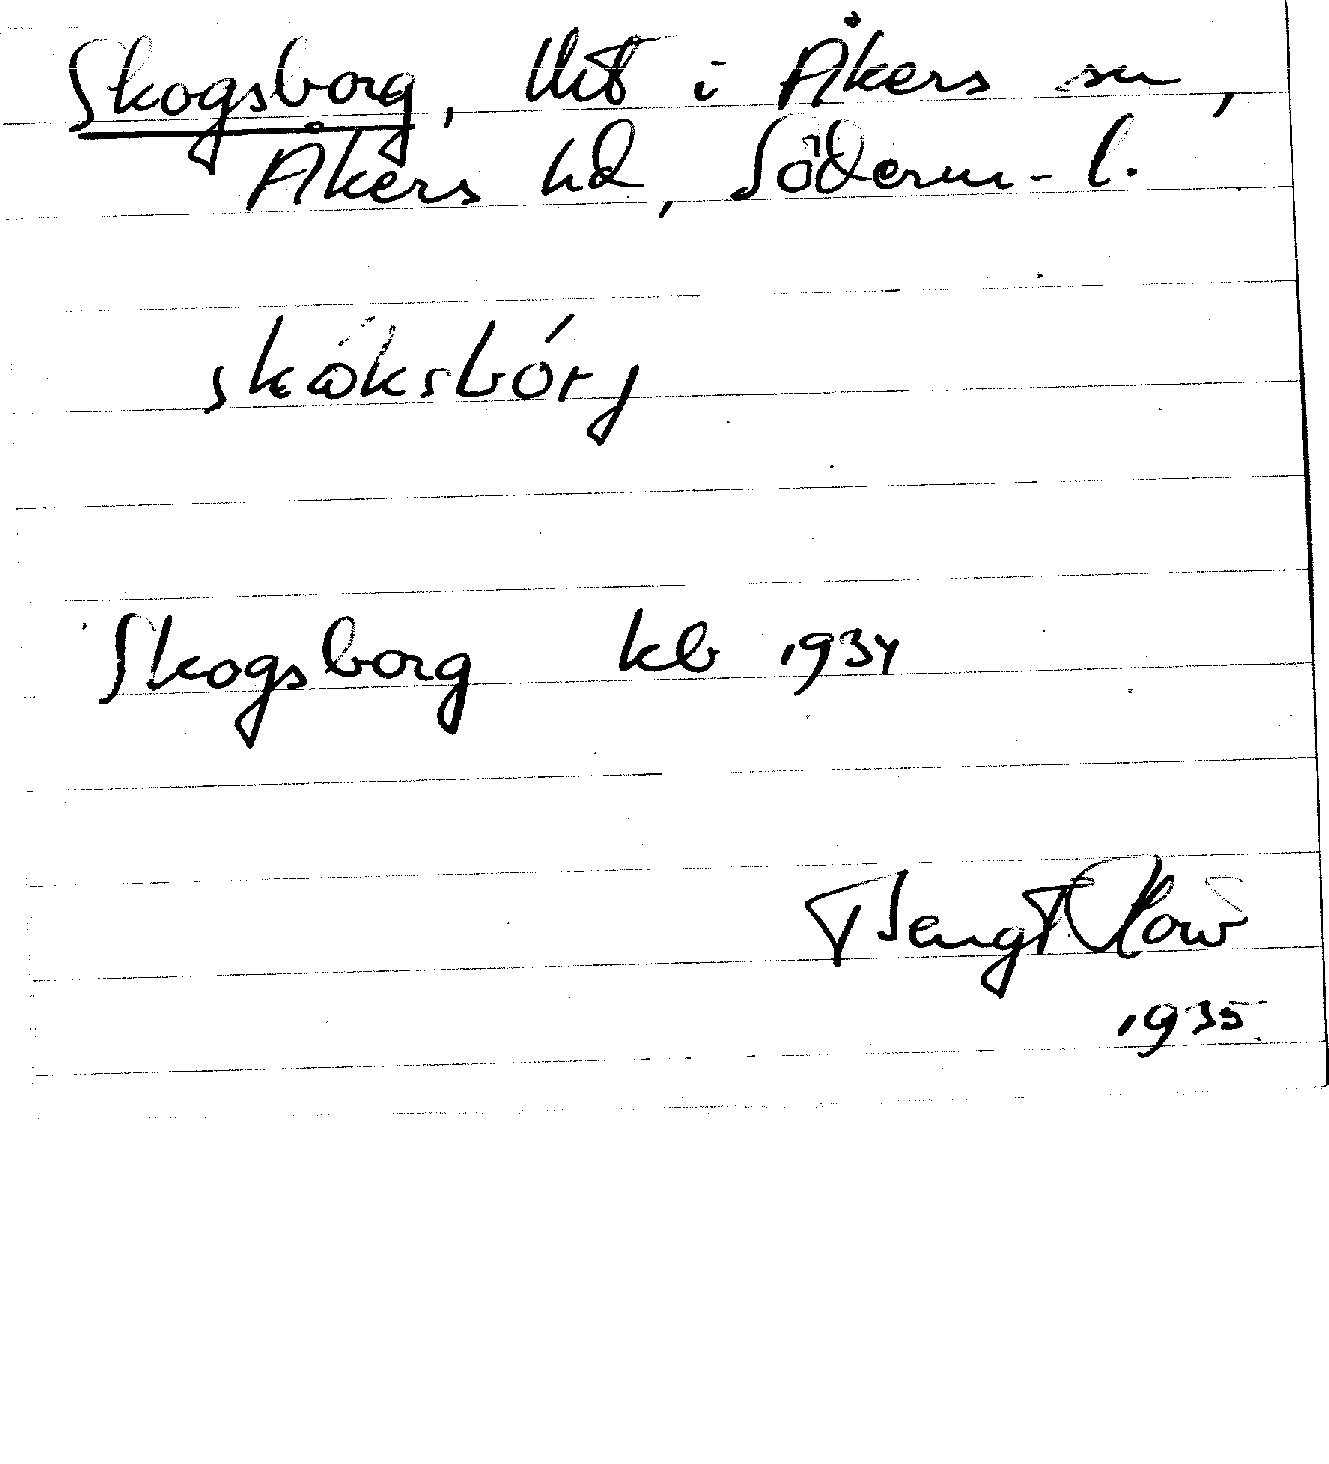 Skogsborg, lht i Åkers sn,
Åkers hd, Söderm-l.
skɷ́ksbórj
Skogsborg kb 1934
Bengt
1935